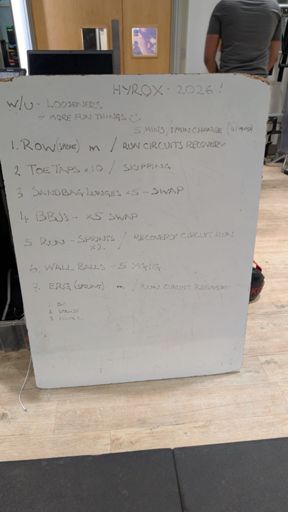 HYROX - 2026!
W/U - LOOSENERS
+ MORE FUN THINGS
5 MINS, 1 MIN CHANGE
1. ROW (SPRINT) m / RUN CIRCUITS RECOVERY
2 TOE TAPS x10 / SKIPPING
3 SANDBAG LUNGES x5 - SWAP
4 BBJS - x5 SWAP
5 RUN - SPRINTS x2 / RECOVERY CIRCUIT RUN
6. WALL BALLS - 5
7. ERG (SPRINT) m / RUN CIRCUIT RECOVERY
1.
2
3